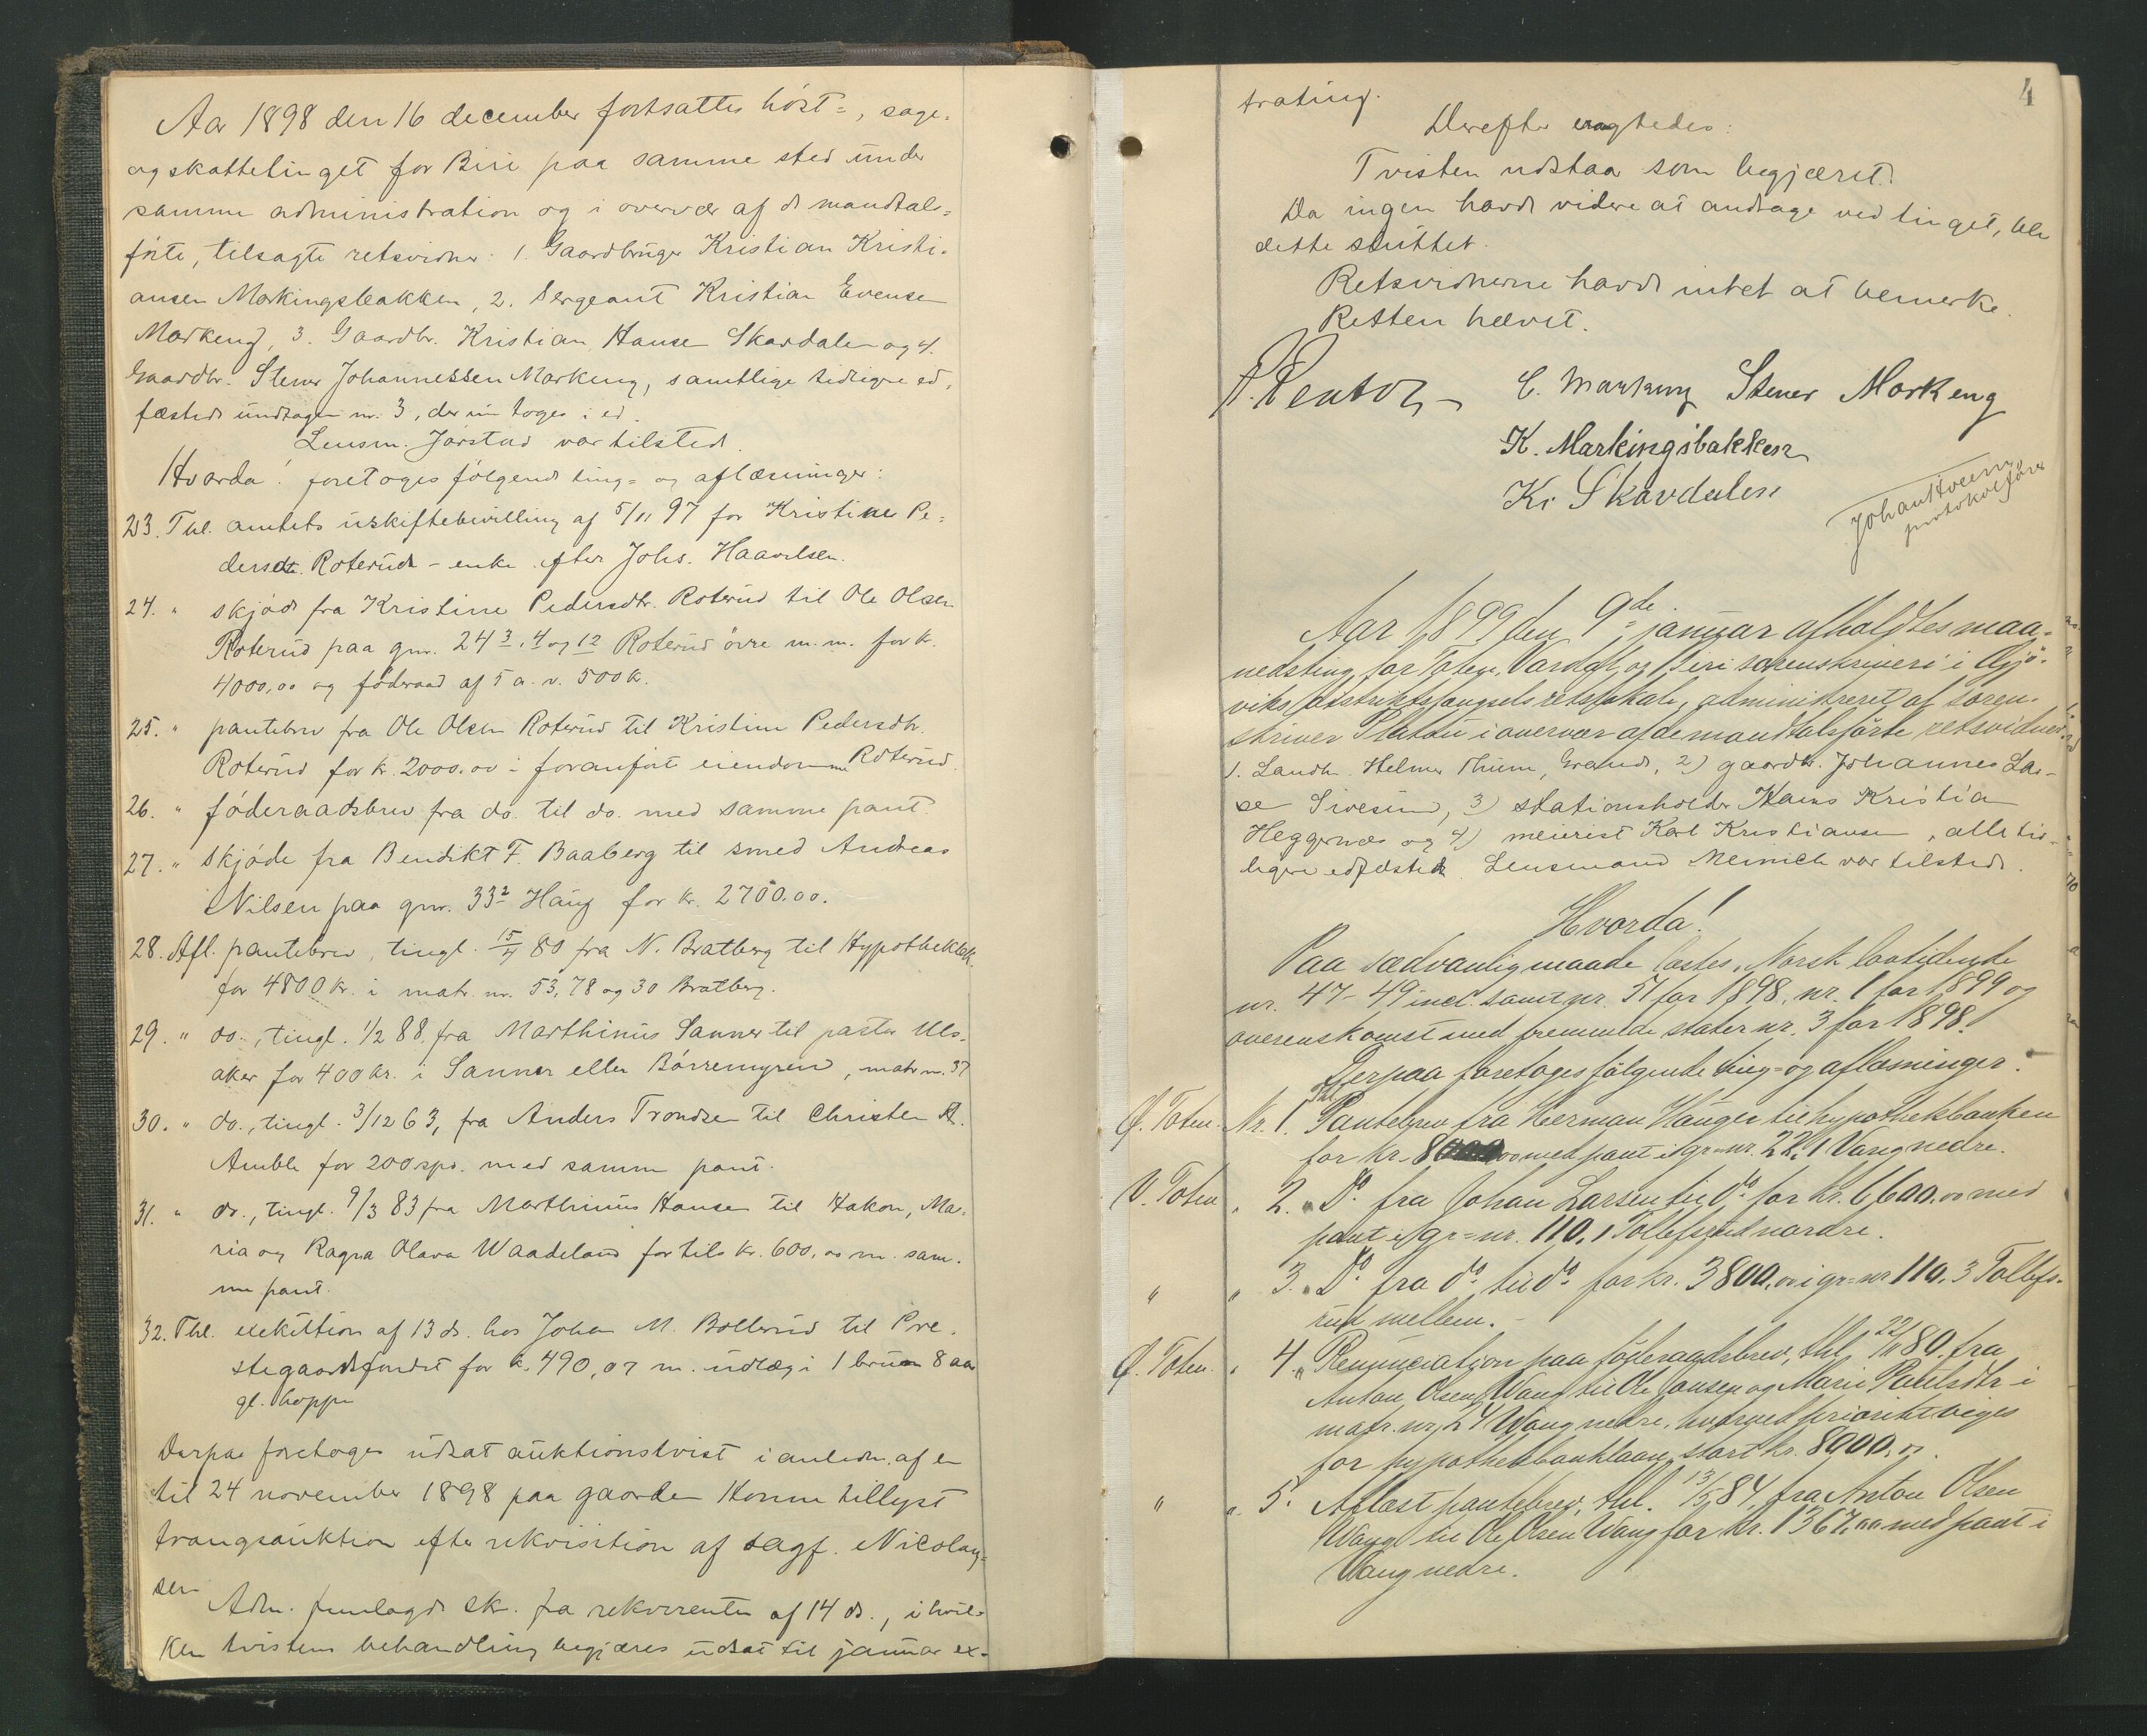 Aar 1898 den 16 december fortsattes høst-, sage-
og skattetinget for Biri paa samme sted under
samme administration og i overvær af de mandtals-
førte, tilsagte retsvidner: 1. Gaardbruger Kristian Kristi-
ansen Markingsbakken, 2. Sergeant Kristian Evensen
Markeng, 3. Gaardbr. Kristian Hansen Skavdalen og 4.
Gaardbr. Stener Johannessen Markeng, samtlige tidligere ed-
fæstede undtagen nr. 3, der nu toges i ed.
Lensm. Jørstad var tilstede.
Hvorda! foretoges følgende ting- og aflæsninger:
23. Thl. amtets uskiftebevilling af 5/11 97 for Kristine Pe-
dersdtr. Roterud - enke efter Johs. Haavelsen.
24. " skjøde fra Kristine Pedersdtr. Roterud til Ole Olsen
Roterud paa gnr. 24 3, 4 og 12 Roterud øvre m. m. for k.
4000,00 og føderaad af 5 a. v. 500 k.
25. " pantebrev fra Ole Olsen Roterud til Kristine Pedersdtr.
Roterud for kr. 2000.00 i foranførte eiendomme Roterud.
26. " føderaadsbrev fra do. til do. med samme pant.
27. " skjøde fra Bendikt F. Baaberg til smed Andreas
Nilsen paa gnr. 33 2 Haug for kr. 2700.00.
28. Afl. pantebrev, tingl. 15/4 80 fra N. Bratberg til Hypothekbk.
for 4800 kr. i matr. nr. 53, 78 og 30 Bratberg.
29. " do., tingl. 1/2 88, fra Marthinus Sanner til pastor Uls-
aker for 400 kr. i Sanner eller Børremyren, matr. nr. 37
30. " do., tingl. 3/12 63, fra Anders Trondsen til Christen A.
Amble for 200 spd. med samme pant.
31. " do., tingl. 9/3 83 fra Marthinus Hansen til Hakon, Ma-
ria og Ragna Olava Waadeland for tils kr. 600.00 m. sam-
me pant.
32. Thl. exekution af 13 ds. hos Johan M. Bollerud til Præ-
stegaardsfondet for k. 490,07 m. udlæg i 1 brun 8 aar
gl. hoppe
Derpaa foretoges udsat auktionstvist i anledn. af en
til 24 november 1898 paa gaarden Honne tillyst
tvangsauktion efter rekvisition af sagf. Nicolay-
sen
Adm. fremlagde sk. fra rekvirenten af 14 ds., i hvil-
ken tvistens behandling begjæres udsat til januar ex-
4
trating.
Derefter eragtedes:
Tvisten udstaa som begjæret.
Da ingen havde videre at andrage ved tinget, blev
dette sluttet.
Retsvidnerne havde intet at bemerke.
Retten hævet.
C. Markeng Stener Markeng
K. Markingsbakken
Kr Skavdalen
Johan Hveem
protokolfører
Aar 1899 den 9de januar afholdtes maa-
nedsting for Toten, Vardal og Biri sorenskriveri i Gjø-
viks distriktsfængsels retslokale, administreret af soren-
skriver Platou i overvær af de mandtalsførte retsvidner
1. Landh. Helmer Thune, Grande, 2) gaardbr. Johannes Lar-
sen Sivesind, 3) stationsholder Hans Kristian
Heggernæs og 4) meierist Karl Kristiansen, alle tid-
ligere edfæstede. Lensmand Meinich var tilstede.
Hvorda!
Paa sædvanlig maade læstes Norsk lovtidende
nr. 47 - 49 incl. samt nr. 51 for 1898, nr. 1 for 1899 og
overenskomst med fremmede stater nr. 3 for 1898.
Derpaa foretoges følgende ting- og aflæsninger:
Ø. Toten. Nr. 1. Thl. Pantebrev fra Herman Hanger til hypothekbanken
for kr. 8000.00 med pant i gr=nr. 22,1 Vang nedre.
V. Toten " 2. " Do. fra Johan Larsen til do. for kr. 6600.00 med
pant i gr=nr. 110,1 Tollefsrud nordre.
" " 3. " Do. fra do. til do. for kr. 3800,00 i gr=nr 110,3 Tollefs-
rud mellem.
Ø. Toten. " 4. " Renunciation paa føderaadsbrev, thl. 22/11 80, fra
Anton Olsen Wang til Ole Jonsen og Marie Paulsdtr i
matr. nr. 24 Wang nedre, hvorved prioritet viges
for hypothekbanklaan stort kr. 8000,00.
" " 5. Aflæst pantebrev, thl. 13/5 84, fra Anton Olsen
Wang til Ole Olsen Wang for kr. 1367,00 med pant i
Vang nedre.